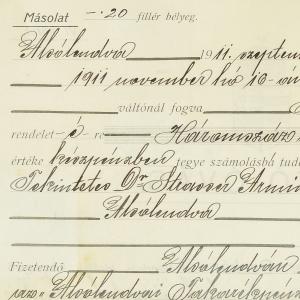 Másolat -.20 fillér bélyeg.
Alsólendva 1911. szeptem
1911 november hó 10-én
váltónál fogva
rendelet -é- re Háromszáz
értéke készpénzben tegye számolásba tud
Tekintetes Dr Strasser Armin
Alsólendva
Fizetendő Alsólendván
az „Alsólendvai Takarékpén